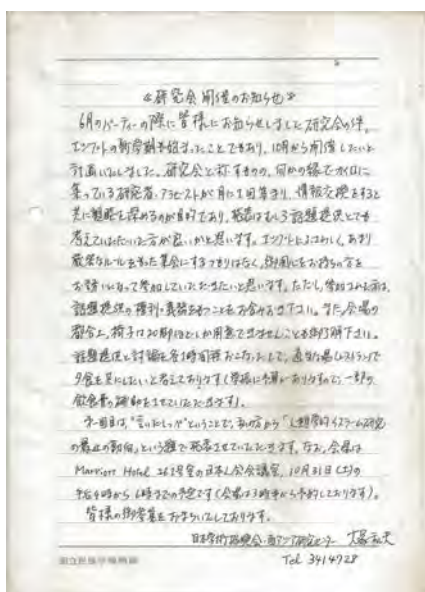 ≪研究会開催のお知らせ≫
6月のパーティーの際に皆様にお知らせしました研究会の件、
エジプトの新学期も始まったことでもあり、10月から開催したいと
計画いたしました。研究会と称すものの、何かの縁でカイロに
集っている研究者・アラビストが月に1回集まり、情報交換をすると
共に親睦を深めるのが目的であり、発表はむしろ話題提供とでも
考えていただいた方が良いかと思います。エジプトによさわしく、あまり
厳格なルールを作った集会にするつもりはなく、御関心をお持ちの方を
お誘いになって参加していただきたいと思います。ただし、参加する方は、
話題提供の権利・義務をもつことをお含みおき下さい。また、会場の
都合上、椅子は20脚ほどしか用意できませんことも御了解下さい。
話題提供と討論を各1時間程おこないまして、適当な場レストランで
夕食を共にしたいと考えております(学振に予算がありますので、一部の
飲食費の補助をさせていただきます)。
第一回目は、"言いだしっぺ"ということで、私の方から「人類学的イスラーム研究
の最近の動向」という題で発表させていただきます。なお、会場は
Marriott Hotel 261号室の日本人会会議室、10月31日(土)の
午后4時から6時までの予定です(会場は3時半から予約しております)。
皆様の御参集をお待ちいたしております。
日本学術振興会・西アジア研究センター 大塚和夫
Tel 3414728
国立民族学博物館